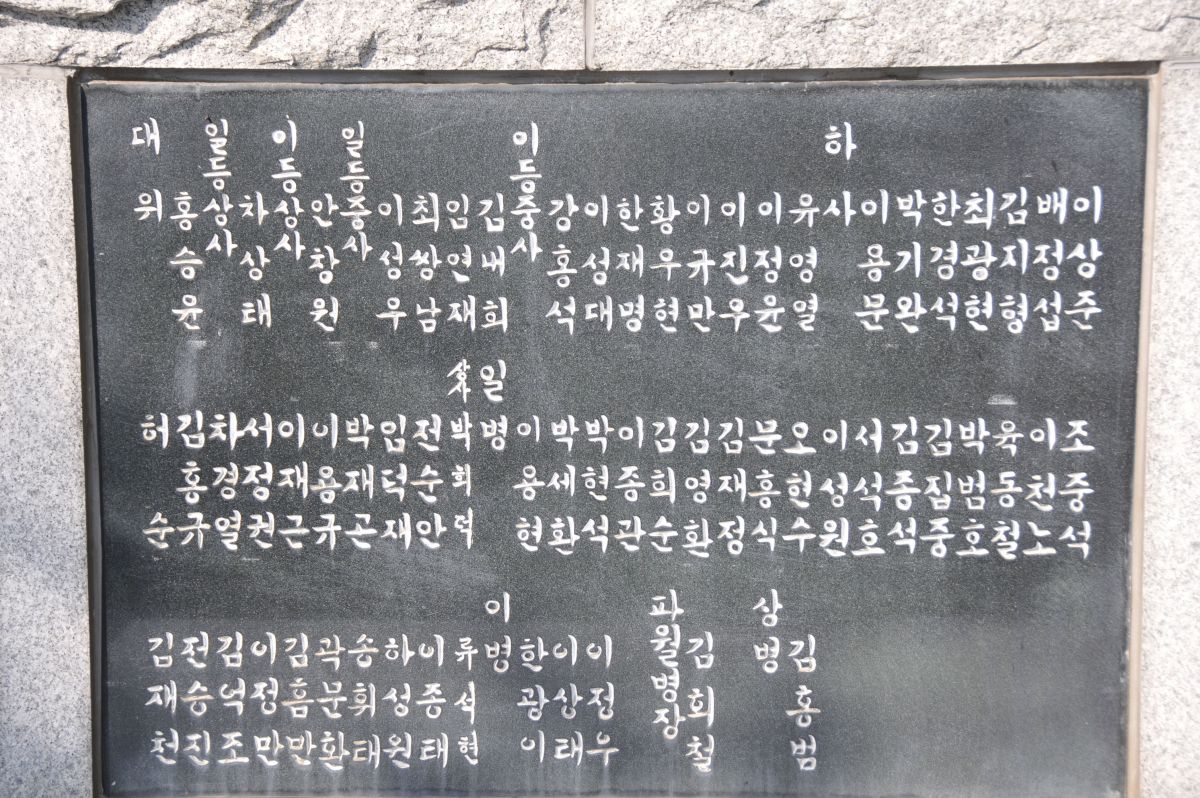 대위
홍승윤
일등상사
차상태
이등상사
안창원
일등중사
이성우
최쌍남
임연재
김내희
이등중사
강홍석
이성대
한재명
황우현
이규만
이진우
이정윤
유영열
하사
이용문
박기완
한경석
최광현
김지형
배정섭
이상준
허순
김홍규
차경열
서정권
이재근
이용규
박재곤
임덕재
전순안
상사 박희력
일병
이용현
박세환
박현석
이종관
김희순
김영환
김재정
문흥식
오헌수
이성원
서석호
김종석
김집중
박범호
육동철
이천노
조중석
김재천
전승진
김억조
이정만
김흠만
곽문환
송휘태
하성원
이종태
류석현
이병
한광이
이상태
이정우
파월병장
김회철
상병
김홍범